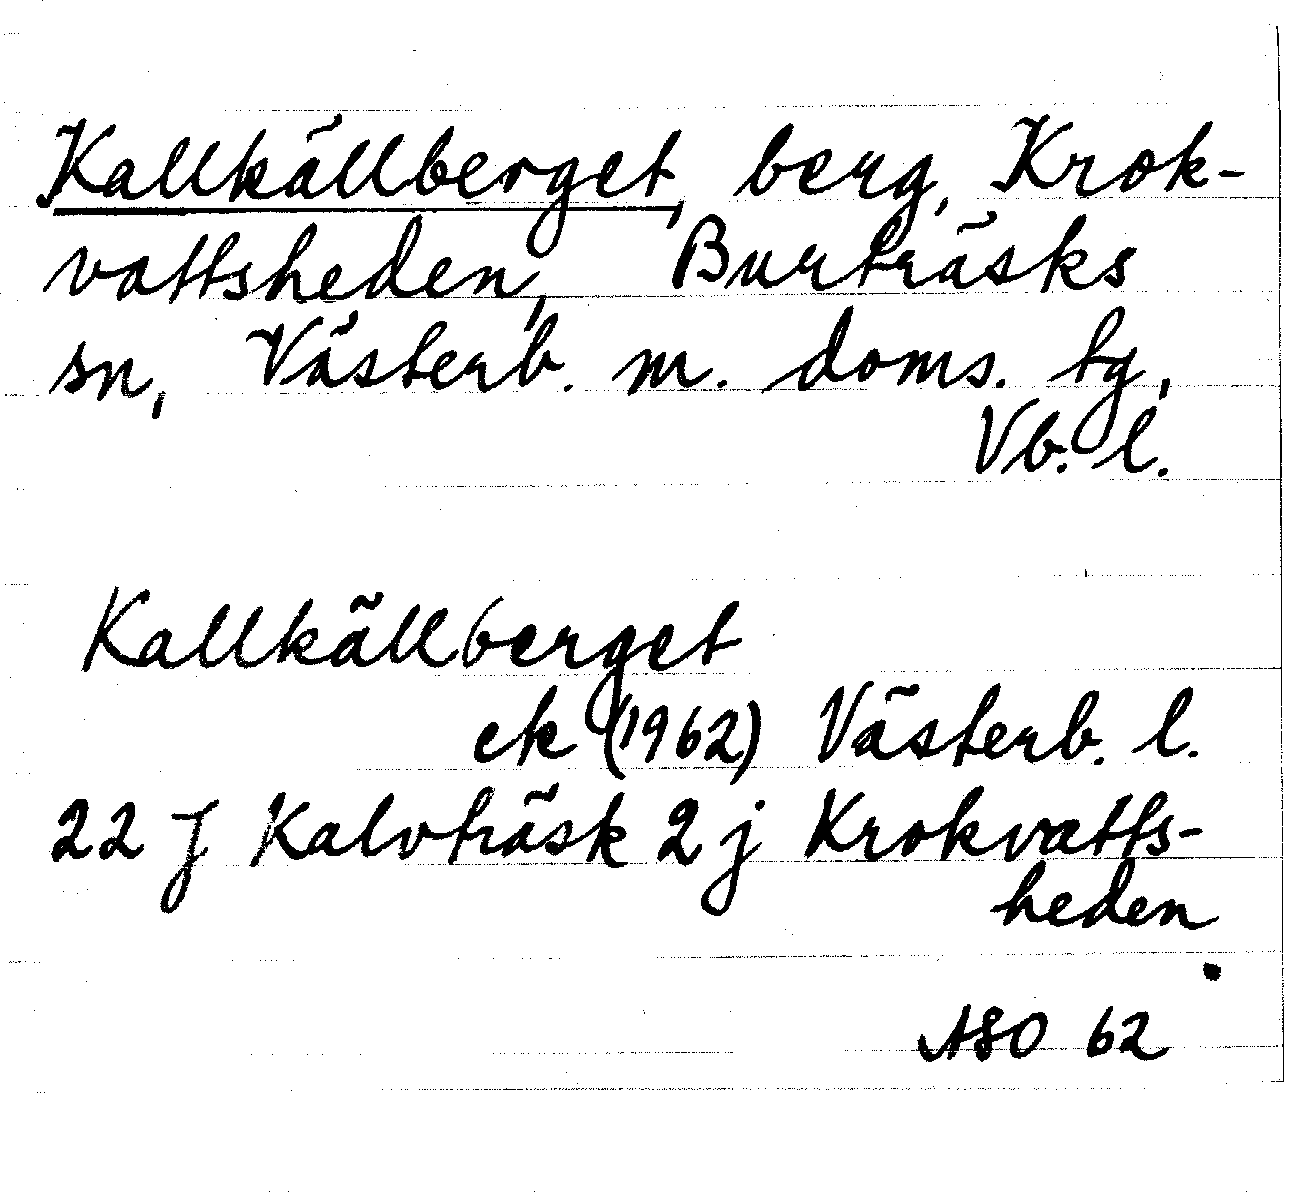 Kallkällberget, berg, Krok-
vattsheden, Burträsks
sn, Västerb. m. doms. tg,
Vb. l.
Kallkällberget
ek (1962) Västerb. l.
22 J Kalvträsk 2 j Krokvatts-
heden
ASO 62